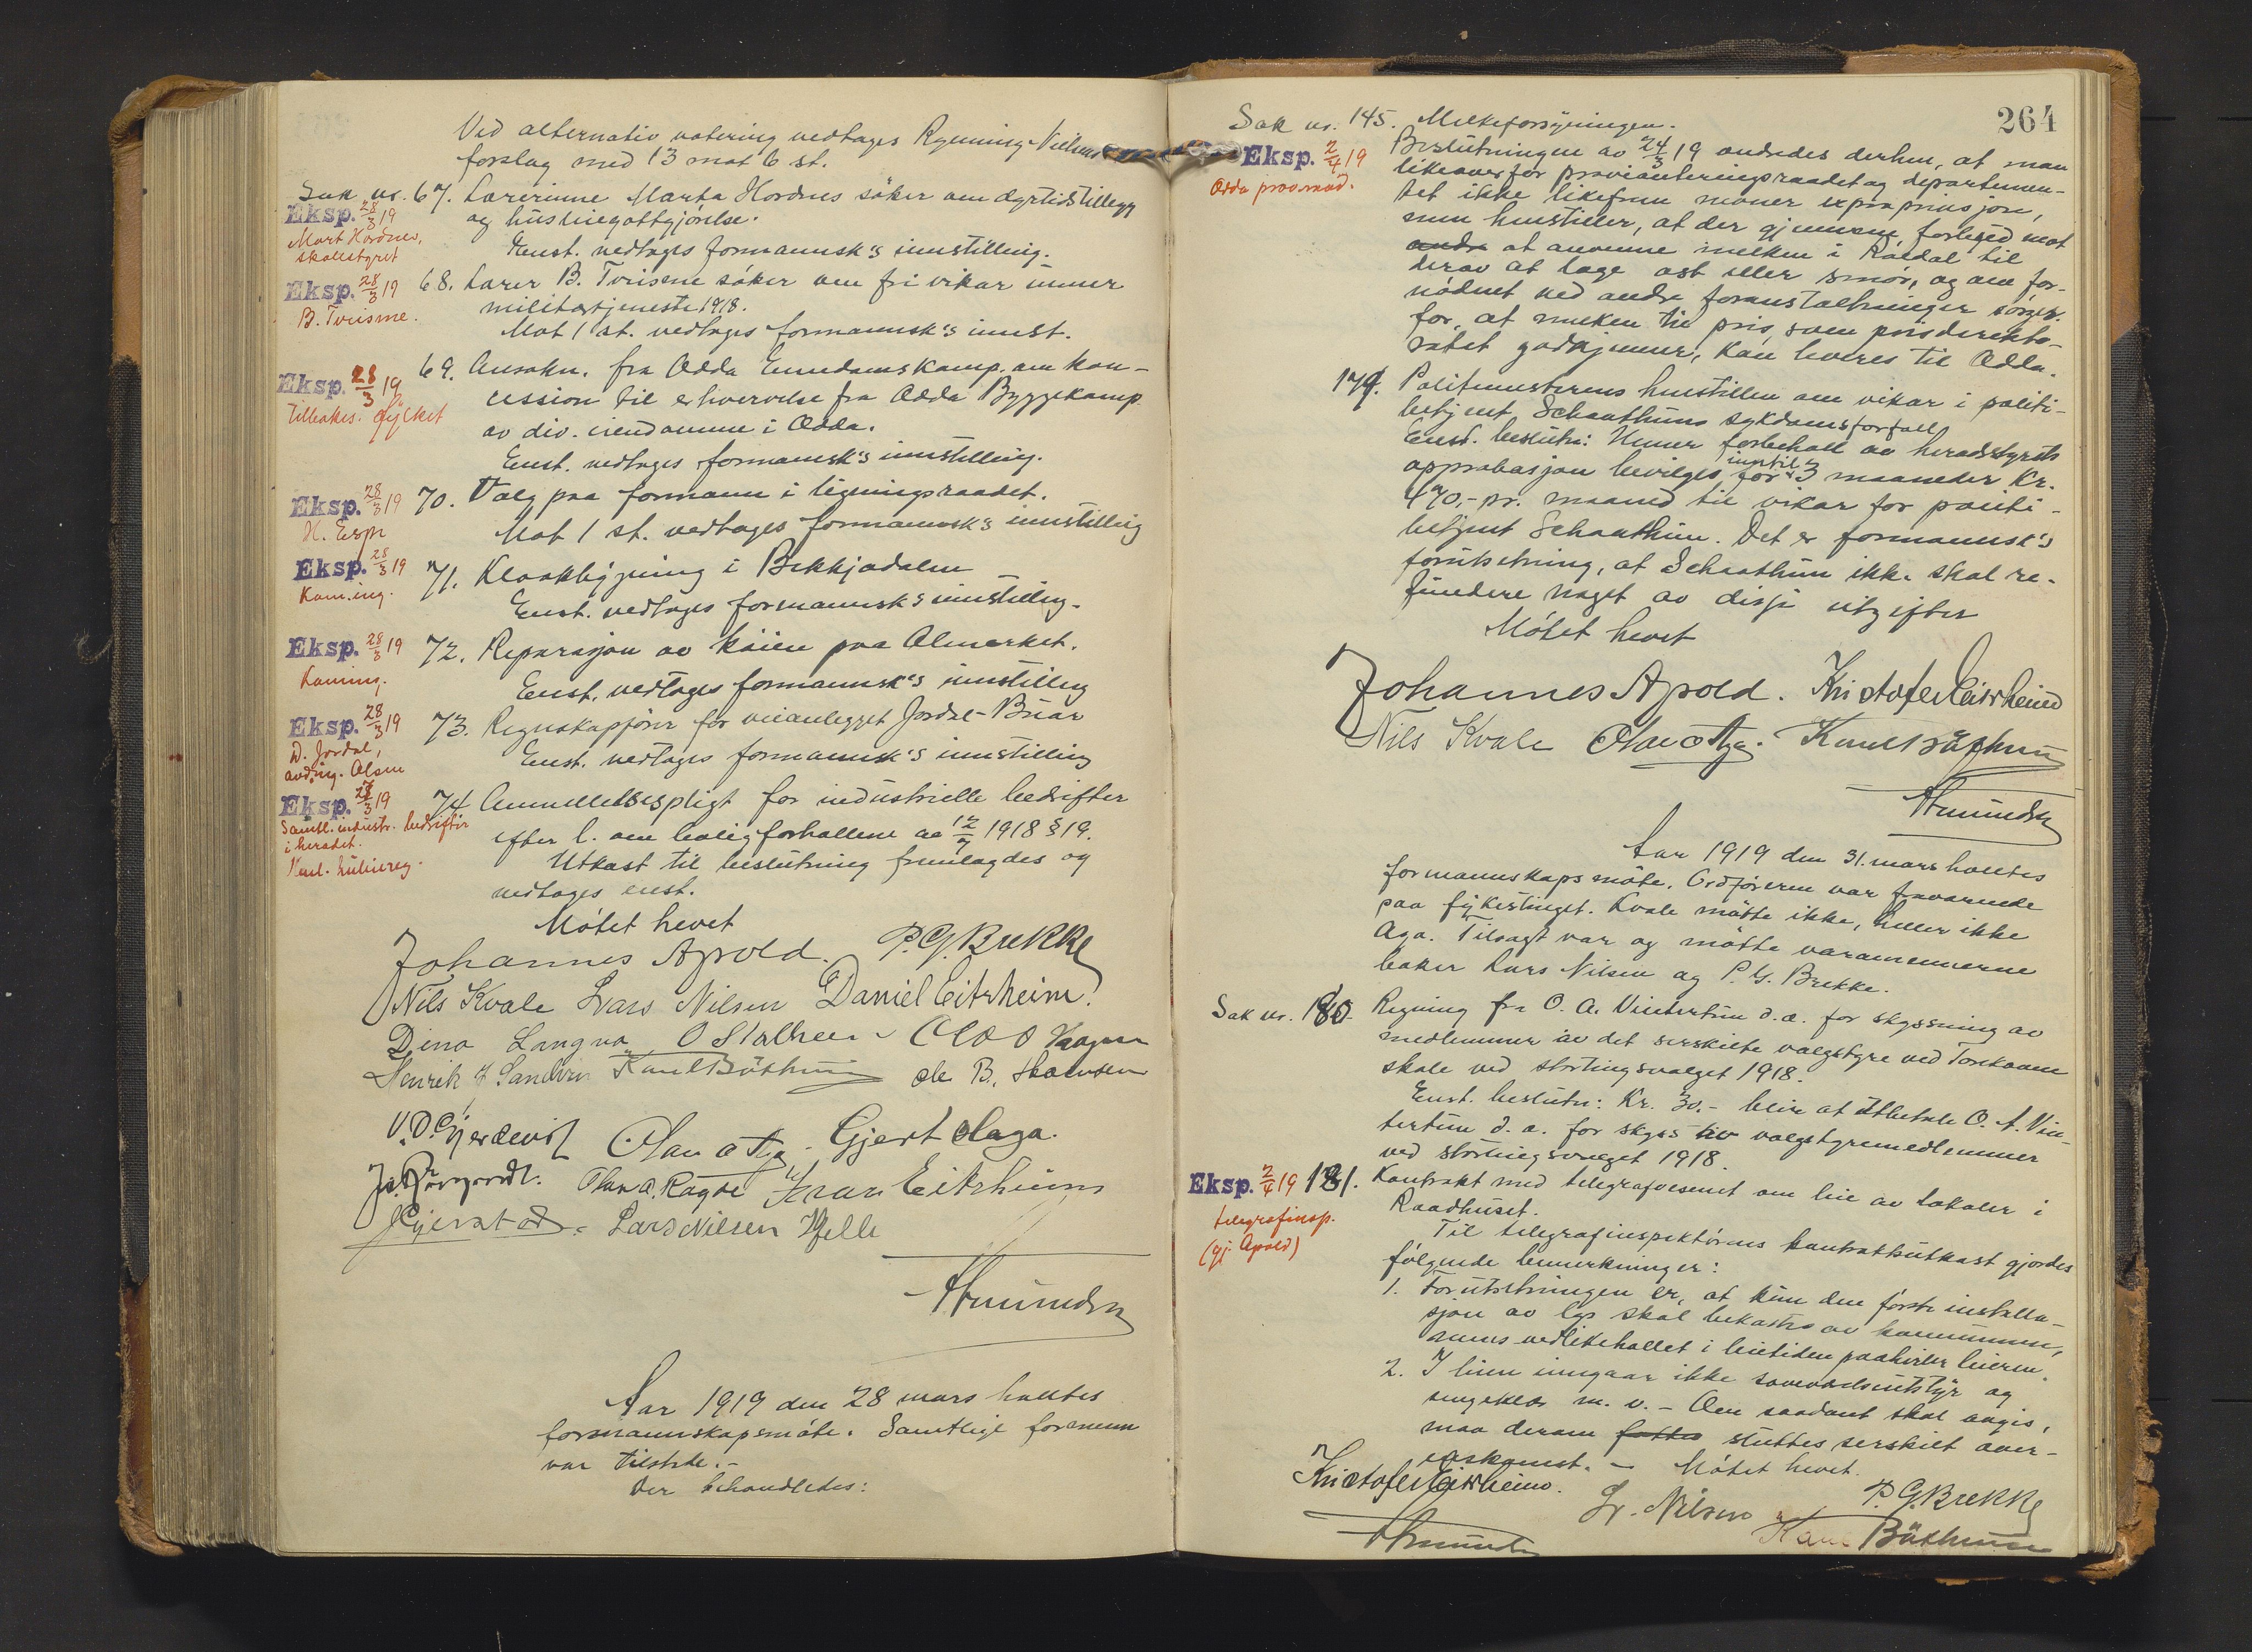 Ved alternativ votering vedtages Rynning-Nielsens
forslag med 13 mot 6 st.
Sak nr. 67. Lærerinne Marta Hordnes söker om dyrtidstillegg
og husleiegottgjörelse.
Enst. vedtages formannsk's innstilling.
Eksp. 28/3 19
Mart Hordnes,
skolestyret
68. Lærer B. Tvisme söker om fri vikar unner
militærtjeneste 1918.
Mot 1 st. vedtages formannsk's innst.
Eksp. 28/3 19
B. Tvisme.
69. Ansökn. fra Odda Eiendomskomp. om kon-
cession til erhvervelse fra Odda Byggekomp
av div. eiendomme i Odda.
Enst. vedtages formannsk's innstilling.
Eksp. 28/3 19
tilbakes. fylket
70. Valg paa formann i ligningsraadet.
Mot 1 st. vedtages formannsk's innstilling
Eksp. 28/3 19
H. Espe
71. Kloakbygning i Bekkjadalen
Enst. vedtages formannsk's innstilling.
Eksp. 28/3 19
Kom.ing.
72. Reparasjon av kaien paa Almerket.
Enst. vedtages formannsk's innstilling
Eksp. 28/3 19
Kom.ing.
73. Regnskapförer for veianlegget Jordal-Buar
Enst. vedtages formannsk's innstilling
Eksp. 28/3 19
D. Jordal,
avd.ing. Olsen
74 Anmeldelsespligt for industrielle bedrifter
efter l. om boligforhollene av 12/7 1918 § 19.
Utkast til beslutning fremlagdes og
vedtages enst.
Eksp. 28/3 19
Samtl. industr. bedrifter
i heradet.
Mötet hevet
Johannes Apold. P. G. Brekke
Nils Kvale Lars Nilsen Daniel Eitrheim
Dina Langva O Stalheim Olav O Haagen
Henrik J Sandvin Karl Böthun Ole B.
Olav O Aga. Gjert Olaga.
Olav A. Ragde Eitrheim
Lars Nilsen Hjelle
Amundsen
Aar 1919 den 28 mars holltes
formannskapsmöte. Samtlige formenn
var tilstede.-
Der behandledes:
264
Sak nr. 145. Melkeforsyningen.
Eksp. 2/4 19
Odda provraad.
Beslutningen av 24/3 19 endredes derhen, at man
likeoverfor provianteringsraadet og departemen-
tet ikke likefrem krever expropriasjon,
men henstiller, at der gjennem forbud mot
at anvenne melken i Röldal til
derav at lage ost eller smör, og om for-
nödnet ved andre foranstaltninger sörges
for, at melken til pris, som prisdirekto-
ratet godkjenner, kan leveres til Odda.
179. Politimesterens henstillen om vikar i politi-
betjent Schaathuns sykdomsforfall
Enst. beslutn: Unner forbehold av heradstyrets
approbasjon bevilges for inntil 3 maaneder Kr.
470,- pr. maaned til vikar for politi-
betjent Schaathun. Det er formannsk's
forutsetning, at Schaathun ikke skal re-
fundere noget av disse utgifter
Mötet hevet
Johannes Apold. Kristofer Eitrheim
Nils Kvale Olav O Aga. Karl Böthun
Amundsen
Aar 1919 den 31. mars holltes
formannskapsmöte. Ordföreren var fraværende
paa fylkestinget. Kvale mötte ikke, heller ikke
Aga. Tilsagt var og mötte varamennerne
baker Lars Nilsen og P. G. Brekke.
Sak nr. 180. Regning fra O. A. Vintertun d.a. for skyssning av
medlemmer av det serskilte valgstyre ved Tokheim
skole ved stortingsvalget 1918.
Enst. beslutn: Kr. 30.- blir at utbetale O. A. Vin-
tertun d. a. for skyss av valgstyremedlemmer
ved stortingsvalget 1918.
Eksp. 2/4 19
telegrafinsp.
(gj. Apold)
181. Kontrakt med telegrafvesenet om leie av lokaler i
Raadhuset.
Til telegrafinspektörens kontraktutkast gjordes
fölgende bemerkninger:
1. Forutsetningen er, at kun den förste installa-
sjon av lys skal bekostes av kommunen,
mens vedlikehollet i leietiden paahviler leieren.
2. I leien inngaar ikke soveværelsesutstyr og
sengeklær m. v. - Om saadant skal avgis,
maa derom fattes sluttes serskilt over-
enskomst. - Mötet hevet.
Kristofer Eitrheim. L. Nilsen P. G. Brekke
Amundsen Karl Böthun